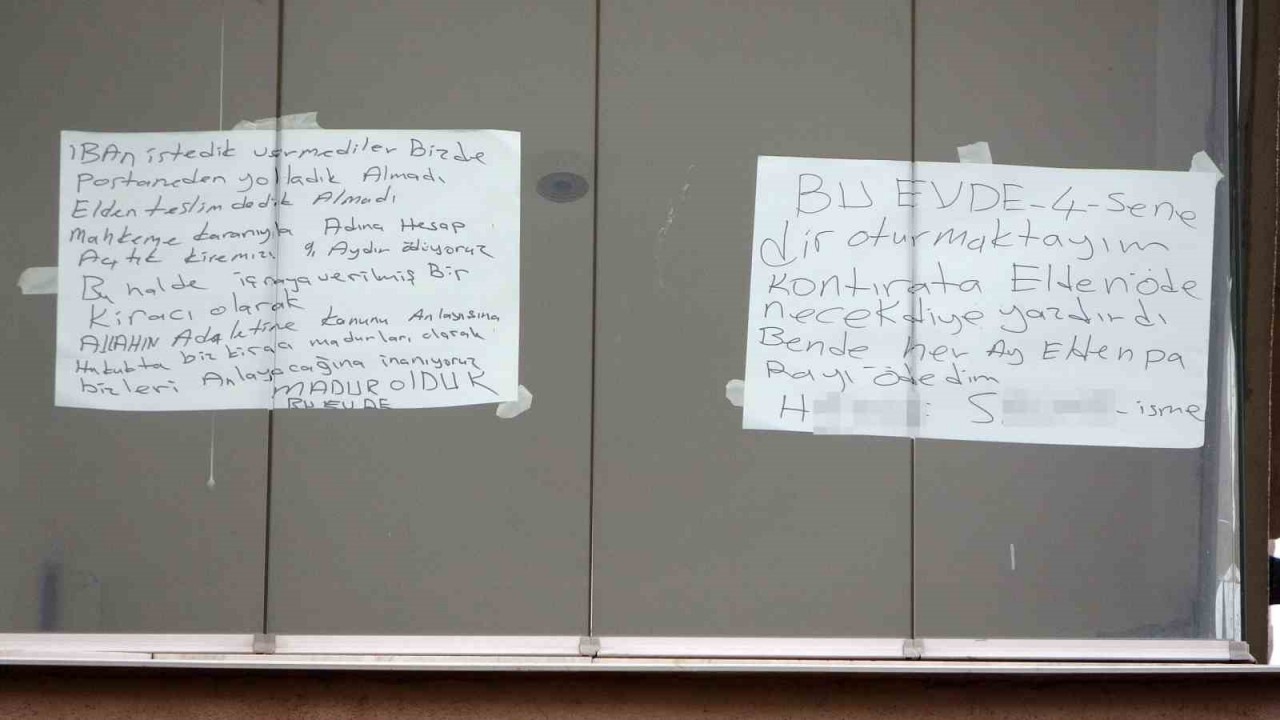 IBAN istedik vermediler Bizde
Postaneden yolladık Almadı
Elden teslim dedik Almadı
Mahkeme kararıyla Adına Hesap
Açtık kiremizi 9 Aydır ödüyoruz
Bu halde icraya verilmiş Bir
kiracı olarak
AllAHIN Adaletine kanunu Anlayısına
Hukukta biz kiracı madurları olarak
bizleri Anlayacağına inanıyoruz
MADUR OlDUK
BU EVDE
BU EVDE-4-Sene
dir oturmaktayım
kontırata Elden öde
necek diye yazdırdı
Bende her Ay Elden pa
Rayı ödedim
H S -isme